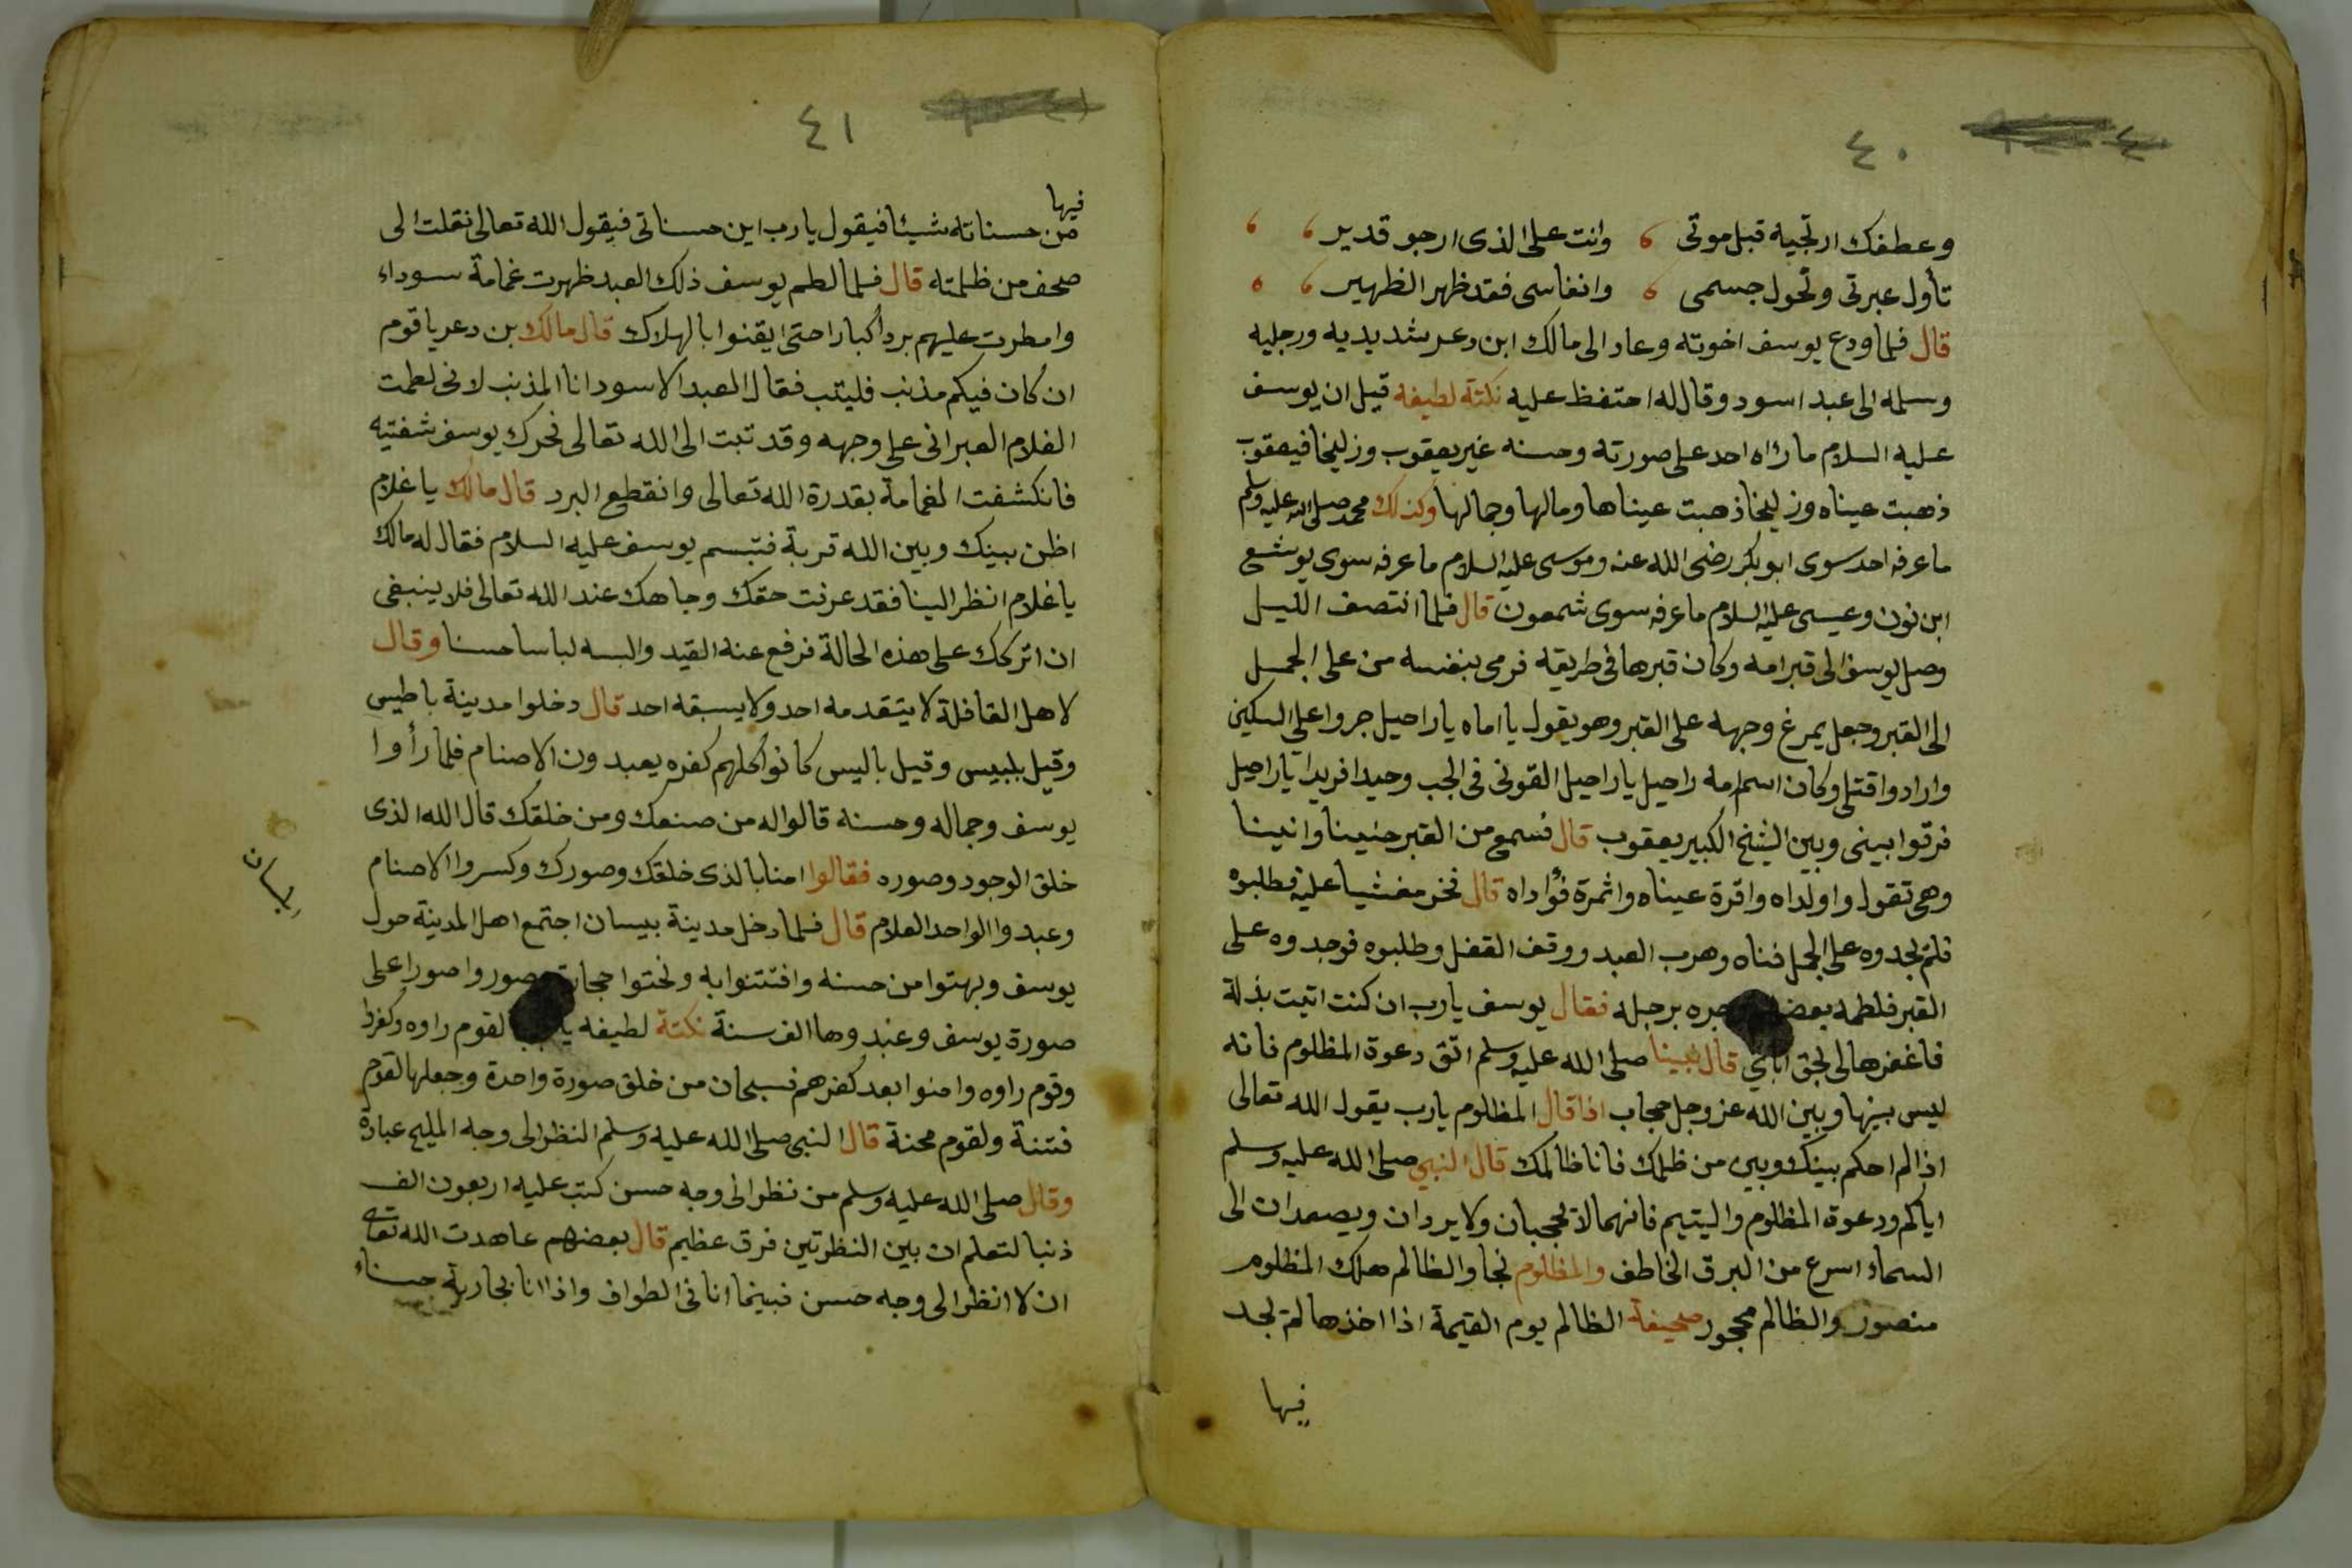 ٤٠
وعطفك ارتجيه قبل موتى وانت على الذى ارجو قدير
تأول عبرتى ونحول جسمى وانفاسى فقد ظهر الظهير
قال فلما ودع يوسف اخوته وعاد الى مالك ابن دعر شد يديه ورجليه
وسلمه الى عبد اسود وقال له احتفظ عليه نكتة لطيفه قيل ان يوسف
عليه السلام ماراه احد على صورته وحسنه غير يعقوب وزليخا فيعقوب
ذهبت عيناه وزليخا ذهبت عيناها ومالها وجمالها وكذلك محمد صلى الله عليه وسلم
ما عرفه احد سوى ابو بكر رضى الله عنه وموسى عليه السلام ما عرفه سوى يوشع
ابن نون وعيسى عليه السلام ما عرفه سوى شمعون قال فلما انتصف الليل
وصل يوسف الى قبر امه وكان قبرها فى طريقه فرمى بنفسه من على الجمل
الى القبر وجعل يمرغ وجهه على القبر وهو يقول يا اماه يا راحيل جروا على السكين
وارادوا قتلى وكان اسم امه راحيل يا راحيل القونى فى الجب وحيدا فريدا يا راحيل
فرقوا بينى وبين الشيخ الكبير يعقوب قال فسمع من القبر حنينا وانينا
وهى تقول واولداه واقرة عيناه واثمرة فؤاداه قال فخر مغشيا عليه فطلبوه
فلم يجدوه على الجمل فناه وهرب العبد ووقف القفل وطلبوه فوجدوه على
القبر فلطمه بعض وجره برجله فقال يوسف يارب ان كنت اتيت بذلة
فاغفرها لى بحق اباى قال نبينا صلى الله عليه وسلم اتق دعوة المظلوم فانه
ليس بينها وبين الله عز وجل حجاب اذا قال المظلوم يارب يقول الله تعالى
اذا لم احكم بينك وبين من ظلمك فانا ظالمك قال النبي صلى الله عليه وسلم
اياكم ودعوة المظلوم واليتيم فانهما لا يحجبان ولا يردان ويصعدان الى
السماء اسرع من البرق الخاطف والمظلوم نجا والظالم هلك المظلوم
منصور والظالم محجور صحيفة الظالم يوم القيمة اذا اخذها لم يجد
فيها
٤١
فيها
من حسناته شيئا فيقول يارب اين حسناتى فيقول الله تعالى نقلت الى
صحف من ظلمته قال فلما لطم يوسف ذلك العبد ظهرت غمامة سوداء
وامطرت عليهم بردا كبارا حتى ايقنوا بالهلاك قال مالك بن دعر يا قوم
ان كان فيكم مذنب فليتب فقال العبد الاسود انا المذنب لانى لطمت
الغلام العبرانى على وجهه وقد تبت الى الله تعالى فحرك يوسف شفتيه
فانكشفت الغمامة بقدرة الله تعالى وانقطع البرد قال مالك يا غلام
اظن بينك وبين الله قربة فتبسم يوسف عليه السلام فقال له مالك
يا غلام انظر الينا فقد عرفت حقك وجاهك عند الله تعالى فلا ينبغى
ان اتركك على هذه الحالة فرفع عنه القيد والبسه لباسا حسنا وقال
لاهل القافلة لا يتقدمه احد ولا يسبقه احد قال دخلوا مدينة باطيس
وقيل بلبيس وقيل باليس كانوا كلهم كفره يعبدون الاصنام فلما رأوا
يوسف وجماله وحسنه قالوا له من صنعك ومن خلقك قال الله الذى
خلق الوجود وصوره فقالوا امنا بالذى خلقك وصورك وكسروا الاصنام
وعبدوا الواحد العلام قال فلما دخل مدينة بيسان اجتمع اهل المدينة حول
بيسان
يوسف وبهتوا من حسنه وافتتنوا به ونحتوا وصوروا صورا على
صورة يوسف وعبدوها الف سنة نكتة لطيفه لقوم راوه وكفروا
وقوم راوه وامنوا بعد كفرهم فسبحان من خلق صورة واحدة وجعلها لقوم
فتنة ولقوم محنة قال النبى صلى الله عليه وسلم النظر الى وجه المليح عبادة
وقال صلى الله عليه وسلم من نظر الى وجه حسن كتب عليه اربعون الف
ذنبا لتعلم ان بين النظرتين فرق عظيم قال بعضهم عاهدت الله تعالى
ان لا انظر الى وجه حسن فبينما انا فى الطواف واذا انا بجارية حسناء